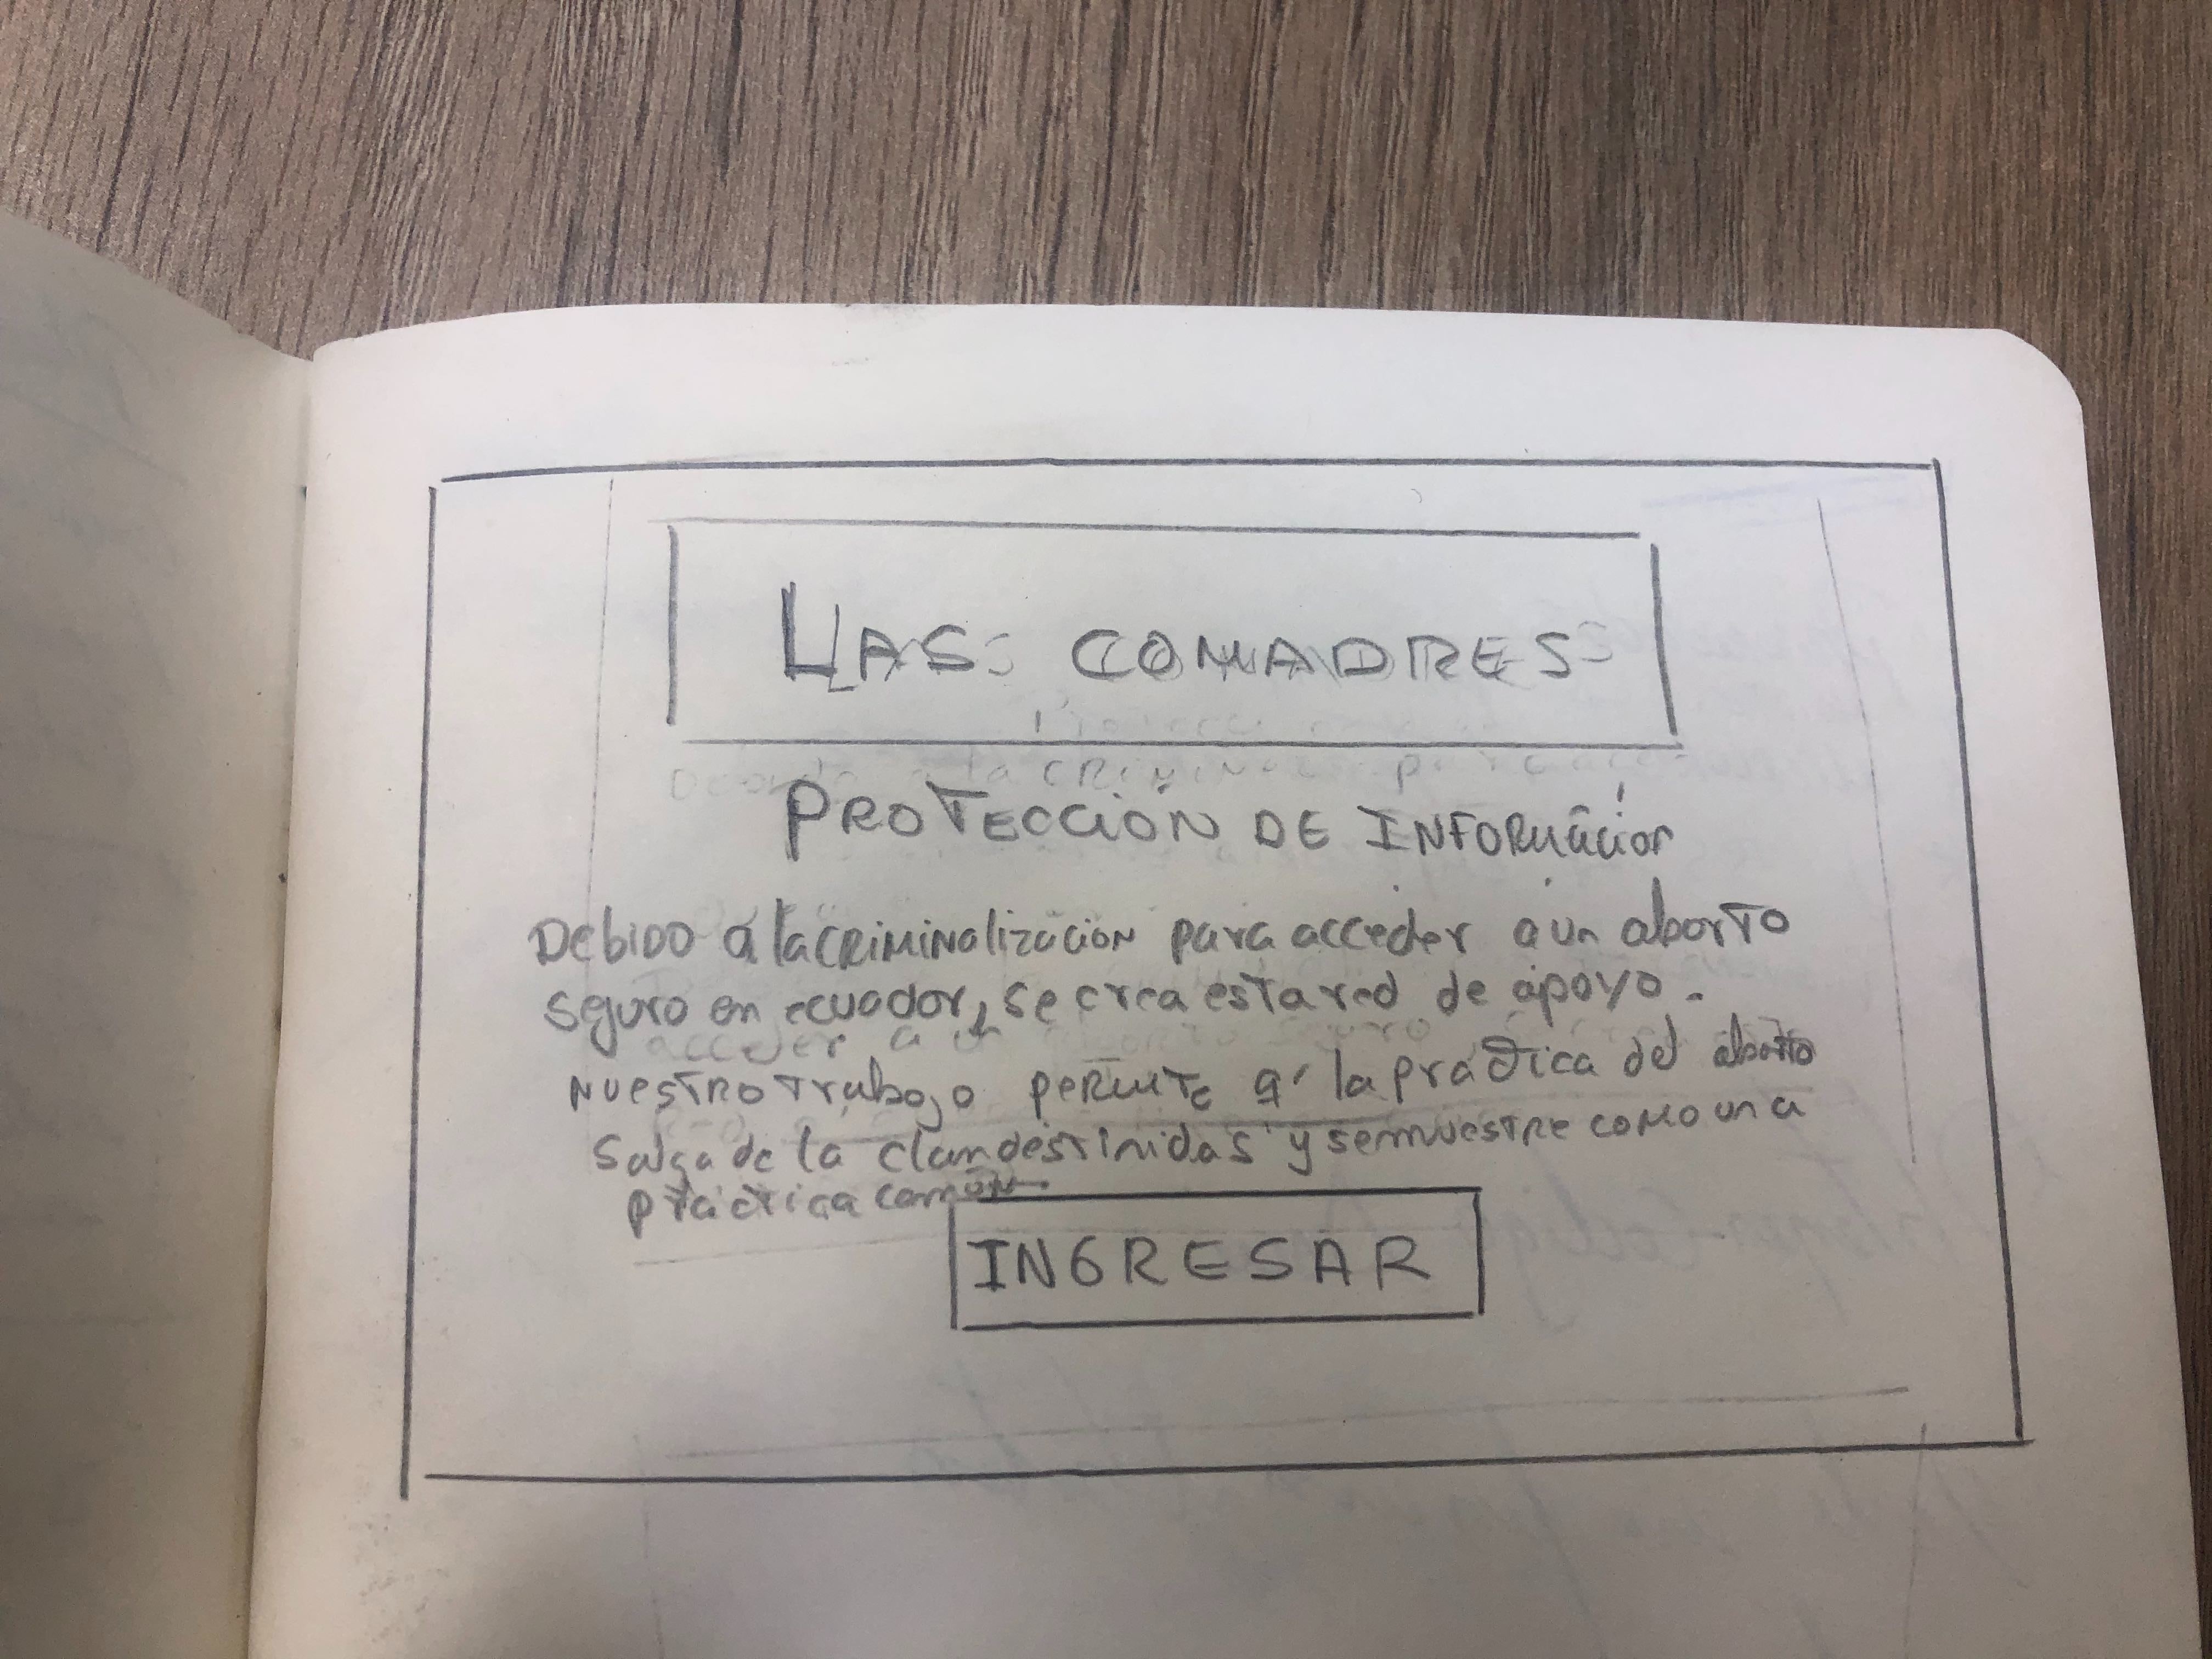 LAS COMADRES
PROTECCIÓN DE INFORMACIÓN
Debido a la criminalización para acceder a un aborto
seguro en ecuador, se crea esta red de apoyo.
Nuestro trabajo permite q' la práctica del aborto
salga de la clandestinidas y se muestre como una
práctica común.
INGRESAR